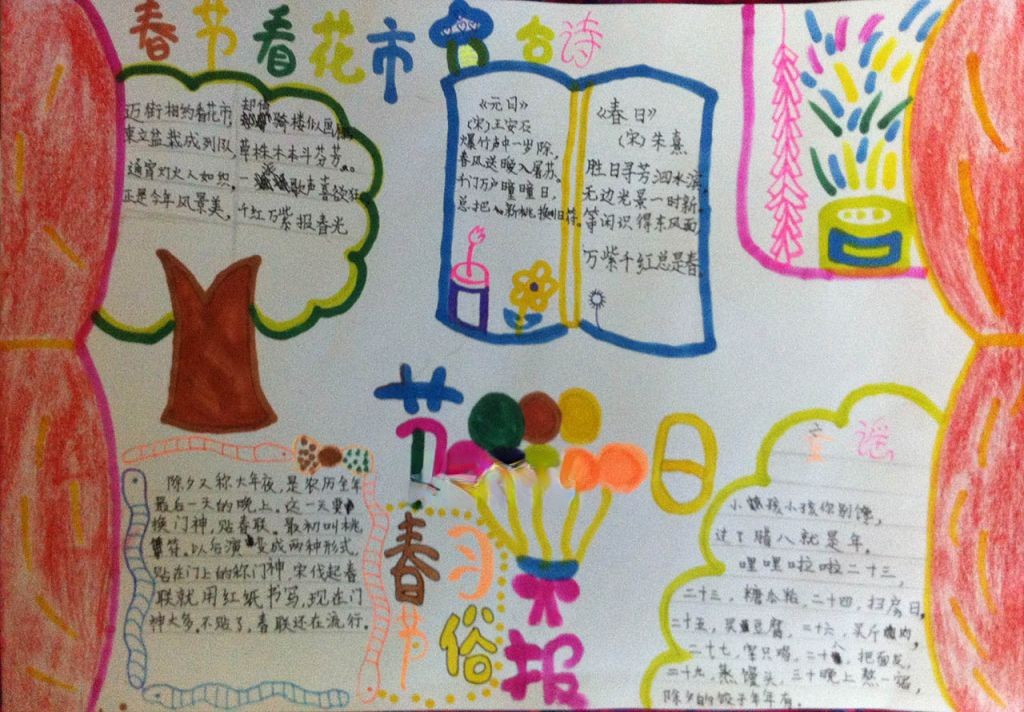 春节看花市
迈街相约看花市，
骑楼似画
东文盆栽成列队，草株木本斗芬芳。
通宵灯火人如织，一派歌声喜欲狂
正是今年风景美，千红万紫报春光
古诗
《元日》
(宋)王安石
爆竹声中一岁除，
春风送暖入屠苏。
千门万户曈曈日，
总把新桃换旧符。
《春日》
(宋)朱熹
胜日寻芳泗水滨，
无边光景一时新。
等闲识得东风面
万紫千红总是春。
节日报
除夕又称大年夜，是农历全年
最后一天的晚上。这一天要
换门神，贴春联。最初叫桃
符。以后演变成两种形式，
贴在门上的称门神，宋代起春
联就用红纸书写，现在门
神大多不贴了，春联还在流行。
春节
习俗
童谣
小孩小孩你别馋，
过了腊八就是年。
哩哩啦啦二十三，
二十三，糖瓜粘，二十四，扫房日，
二十五，买豆腐，二十六，买斤肉，
二十七，宰只鸡，二十八，把面发，
二十九，蒸馒头，三十晚上熬一宿，
除夕的饺子年年有。